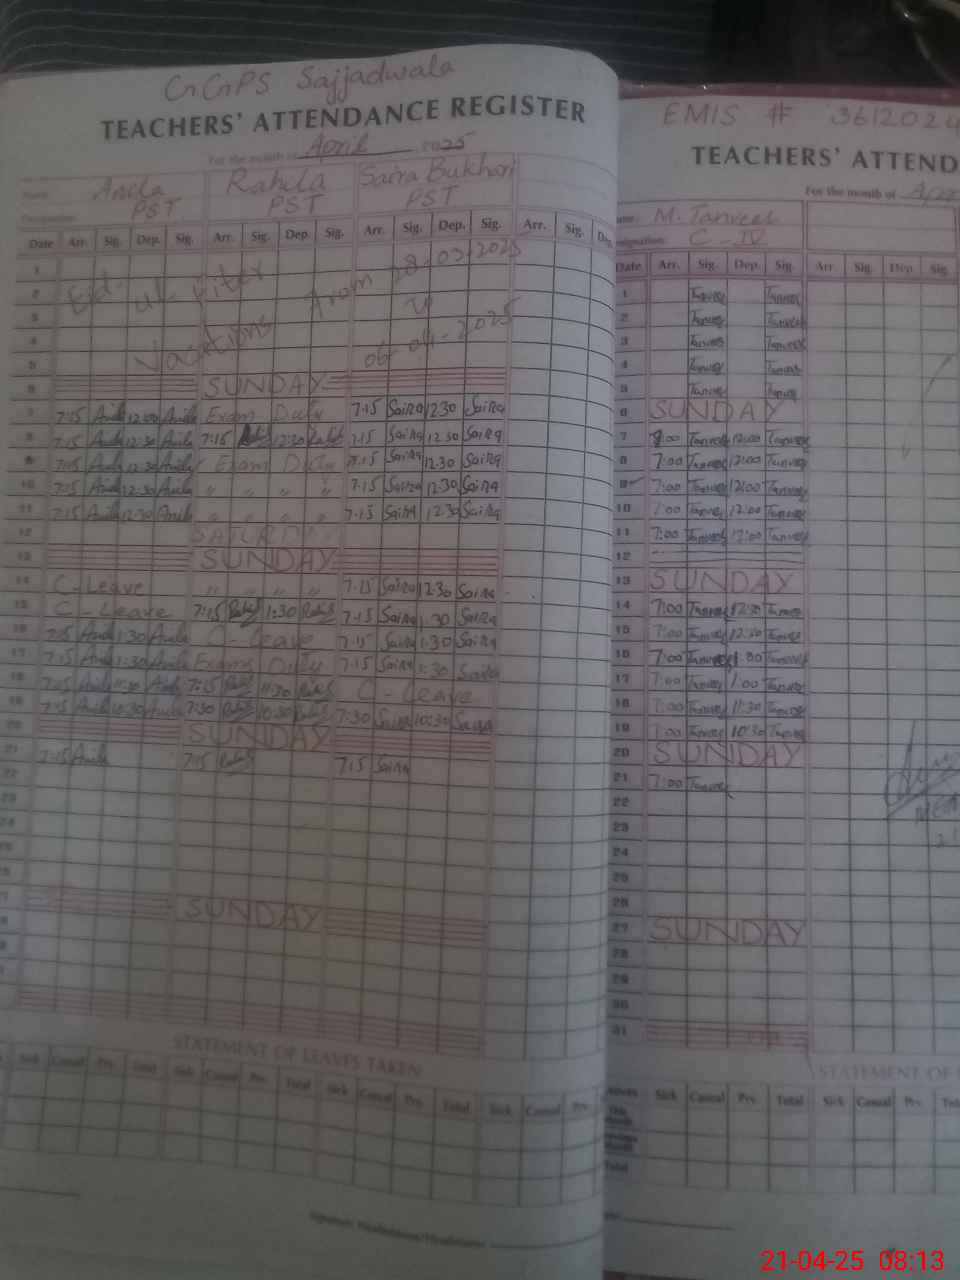 GGPS Sajjadwala
TEACHERS' ATTENDANCE REGISTER
For the month of April 2025
Name: Anila Rahila Saira Bukhari
Designation: PST PST PST
Date Arr. Sig. Dep. Sig. Arr. Sig. Dep. Sig. Arr. Sig. Dep. Sig. Arr. Sig. Dep.
1 Eid-ul-Fiter Vacations from 28-03-2025
2 to
3 06-04-2025
4
5
6 SUNDAY
7 7:15 Anila 12:00 Anila Exam Duty 7:15 Saira 12:30 Saira
8 7:15 Anila 12:30 Anila 7:15 Rahila 12:30 Rahila 7:15 Saira 12:30 Saira
9 7:15 Anila 12:30 Anila Exam Duty 7:15 Saira 12:30 Saira
10 7:15 Anila 12:30 Anila " " " " 7:15 Saira 12:30 Saira
11 7:15 Anila 12:30 Anila " " " " 7:15 Saira 12:30 Saira
12 SATURDAY
13 SUNDAY
14 C-Leave " " " " 7:15 Saira 12:30 Saira
15 C-Leave 7:15 Rahila 1:30 Rahila 7:15 Saira 1:30 Saira
16 7:15 Anila 1:30 Anila C-Leave 7:15 Saira 1:30 Saira
17 7:15 Anila 1:30 Anila Exams Duty 7:15 Saira 1:30 Saira
18 7:15 Anila 11:30 Anila 7:15 Rahila 11:30 Rahila C-Leave
19 7:15 Anila 10:30 Anila 7:30 Rahila 10:30 Rahila 7:30 Saira 10:30 Saira
20 SUNDAY
21 7:15 Anila 7:15 Rahila 7:15 Saira
22
23
24
SUNDAY
STATEMENT OF LEAVES TAKEN
Sick Casual Prv. Total Sick Casual Prv. Total Sick Casual Prv. Total Sick Casual Prv.
EMIS # 3612024
TEACHERS' ATTEND
For the month of Apr
Name: M. Tanveer
Designation: C-IV
Date Arr. Sig. Dep. Sig. Arr. Sig. Dep. Sig.
1 Tanveer Tanveer
2 Tanveer Tanveer
3 Tanveer Tanveer
4 Tanveer Tanveer
5 Tanveer Tanveer
6 SUNDAY
7 8:00 Tanveer 12:00 Tanveer
8 7:00 Tanveer 12:00 Tanveer
9 7:00 Tanveer 12:00 Tanveer
10 7:00 Tanveer 12:00 Tanveer
11 7:00 Tanveer 12:00 Tanveer
12
13 SUNDAY
14 7:00 Tanveer 12:30 Tanveer
15 7:00 Tanveer 12:30 Tanveer
16 7:00 Tanveer 1:30 Tanveer
17 7:00 Tanveer 1:00 Tanveer
18 7:00 Tanveer 11:30 Tanveer
19 7:00 Tanveer 10:30 Tanveer
20 SUNDAY
21 7:00 Tanveer
22
23
24
25
26
27 SUNDAY
28
29
30
31
STATEMENT OF
Sick Casual Prv. Total Sick Casual Prv.
Total
21-04-25 08:13